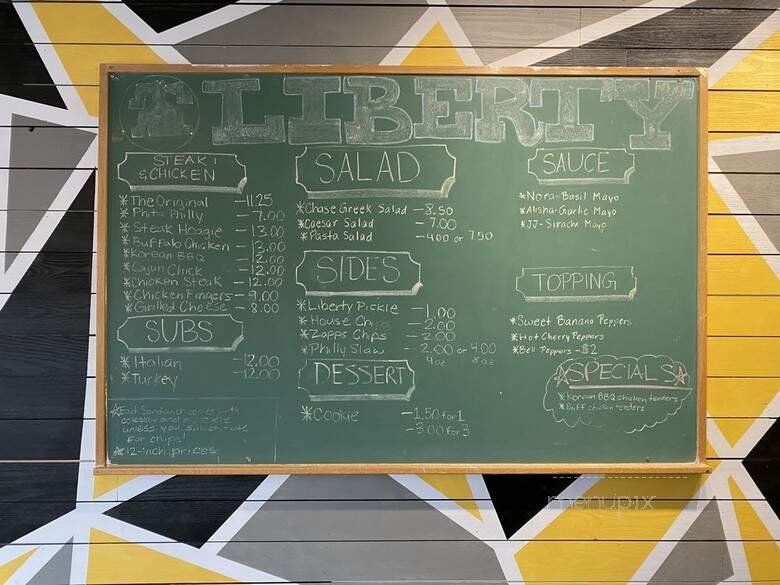 LIBERTY
STEAK &
& CHICKEN
*The Original -11.25
*Phita Philly -7.00
*Steak Hoagie -13.00
*Buffalo Chicken -13.00
*Korean BBQ -12.00
*Cajun Chick -12.00
*Chicken Steak -12.00
*Chicken Fingers -9.00
*Grilled Cheese -8.00
SUBS
*Italian -12.00
*Turkey -12.00
*Each Sandwich comes with
coleslaw and a pickle
unless you substitute
for chips!
*12-inch prices
SALAD
*Chase Greek Salad -8.50
*Caesar Salad -7.00
*Pasta Salad -4.00 or 7.50
SIDES
*Liberty Pickle -1.00
*House Chips -2.00
*Zapps Chips -2.00
*Philly Slaw -2.00 or 4.00
4oz 8oz
DESSERT
*Cookie -1.50 for 1
-3.00 for 3
SAUCE
*Nora-Basil Mayo
*Alisha-Garlic Mayo
*JJ-Siracha Mayo
TOPPING
*Sweet Banana Peppers
*Hot Cherry Peppers
*Bell Peppers -$2
SPECIALS
*Korean BBQ chicken tenders
*Buff chicken tenders
menupix